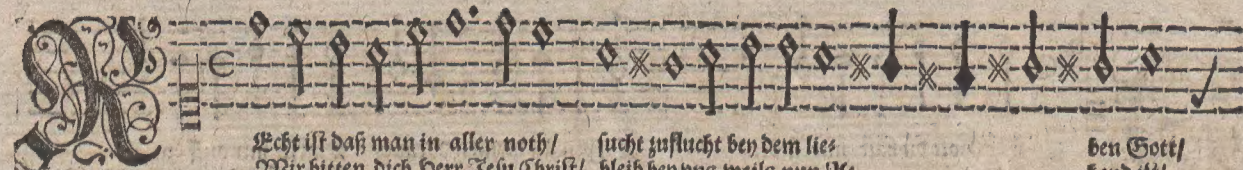 REcht ist daß man in aller noth/ sucht zuflucht bey dem lie⸗ ben Gott/
Wir bitten dich Herr Jesu Christ/ bleib bey uns weils nun